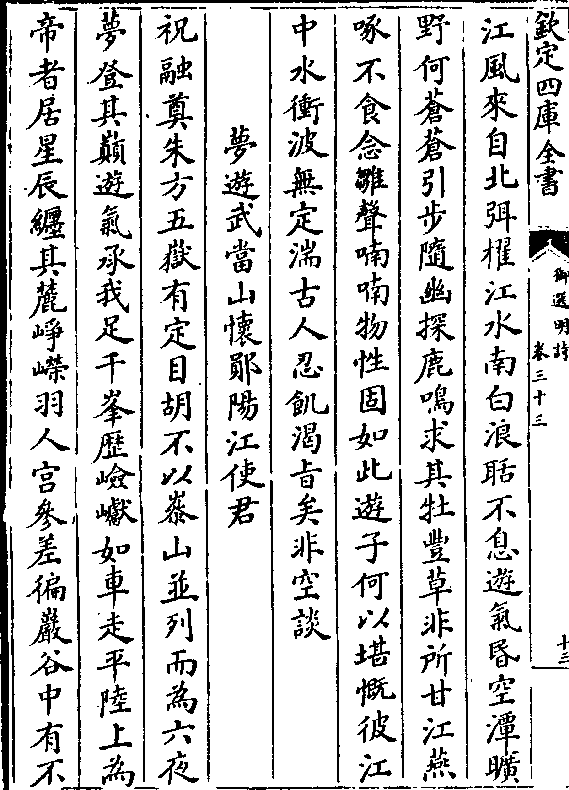 欽定四庫全書
御選明詩
卷三十三
十三
江風來自北弭櫂江水南白浪聒不息遊氣昏空潭曠
野何蒼蒼引步隨幽探鹿鳴求其牡豐草非所甘江燕
啄不食念雛聲喃喃物性固如此遊子何以堪慨彼江
中水衝波無定湍古人忍飢渴旨矣非空談
夢遊武當山懷鄖陽江使君
祝融奠朱方五嶽有定目胡不以嵾山並列而為六夜
夢登其巔遊氣承我足千峯歷嶮巘如車走平陸上為
帝者居星辰纏其麓崢嶸羽人宮參差徧巖谷中有不